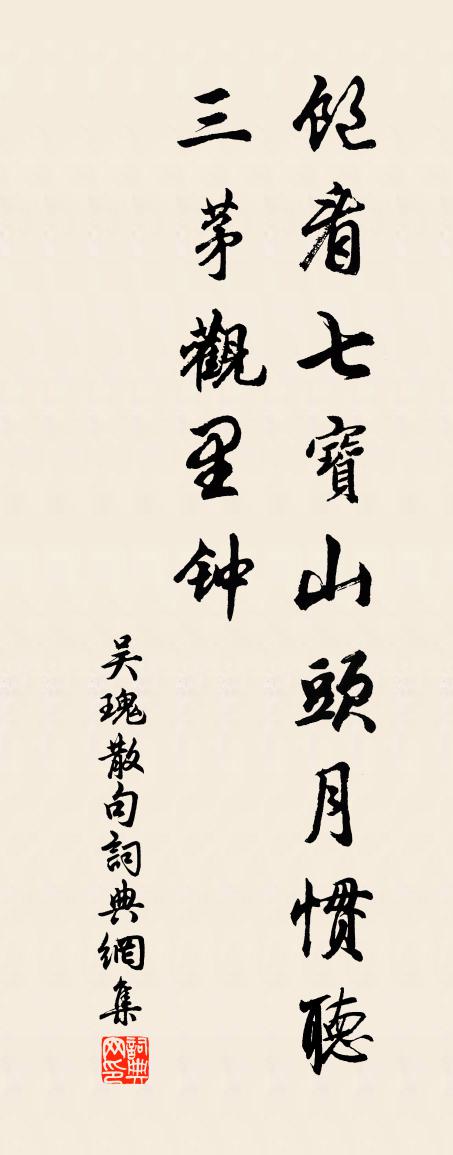 飽看七寶山頭月慣聽
三茅觀里钟
吴瑰散句詞典網集
詞典网印